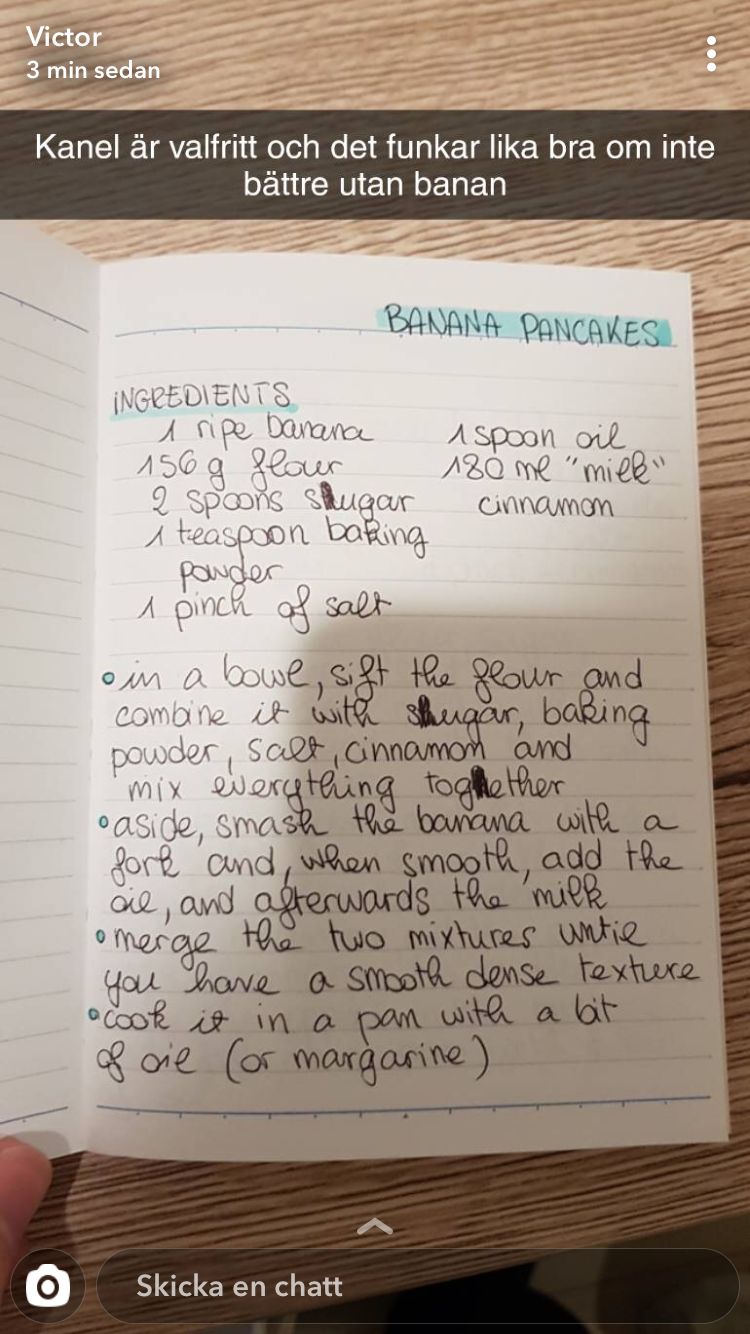 Victor
3 min sedan
Kanel är valfritt och det funkar lika bra om inte
bättre utan banan
BANANA PANCAKES
INGREDIENTS
1 ripe banana
1 spoon oil
156 g flour
180 ml "milk"
2 spoons sugar
cinnamon
1 teaspoon baking
powder
1 pinch of salt
• in a bowl, sift the flour and
combine it with sugar, baking
powder, salt, cinnamon and
mix everything together
• aside, smash the banana with a
fork and, when smooth, add the
oil, and afterwards the milk
• merge the two mixtures until
you have a smooth dense texture
• cook it in a pan with a bit
of oil (or margarine)
Skicka en chatt